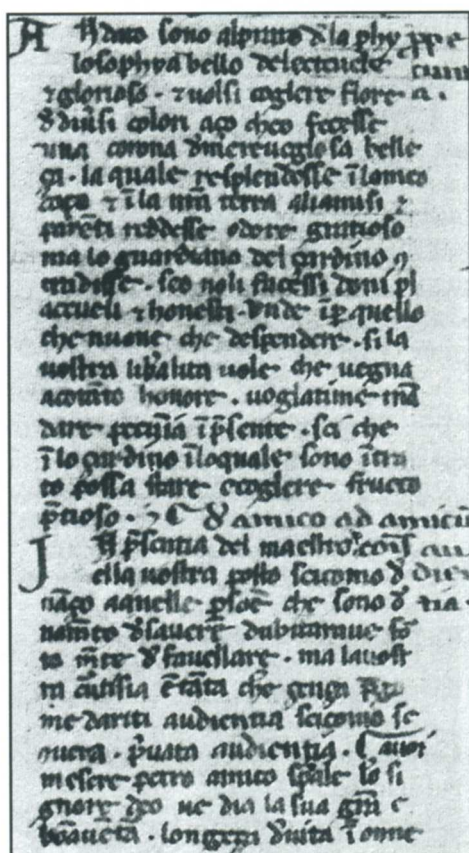 Andato sono alprato d̄ la phy ppͣ e
losophya bello delecteuele
⁊ glorioso · ⁊ uolsi coglere fiore
d̄ diuͥsi colori aço cheo fecesse
una corona d̄ mereueglosa belle
ça · la quale resplendesse ī lomeo
capo ⁊ ī la nrā terra aliamisi ⁊
parēti reddesse odore gratioso
ma lo guardiano del çardino ꝯ
tradisse · seo noli facessi doni pl
aceueli ⁊ honesti · Vnde īp̱ quello
che nuone che despendere · si la
uostra libͥalita uole che uegna
acotāto honore · uoglatime mā
dare pecunia īp̄sente · sci che
ī lo çardino īloquale sono ītra
to possa stare ecoglere fructo
p̄tioso · ⁊ ¶ d̄ amico ad amicū
In p̄sentia del maestro
ella uostra posso sicomo d̄
naço aquelle ꝑsoē che sono d̄
nomēto d̄ sauere dubitamue fo
to mͤte d̄ fauellare · ma lauost
ra cͥtisia ē tāta che
me dariti audientia sicomo se
uera · pͥuata audientia · ¶ Auoi
mesere petro amico sp̄ale lo si
gnore d̄o ue dia la sua grā e
bōauētā · longeça d̄ uita ī onne